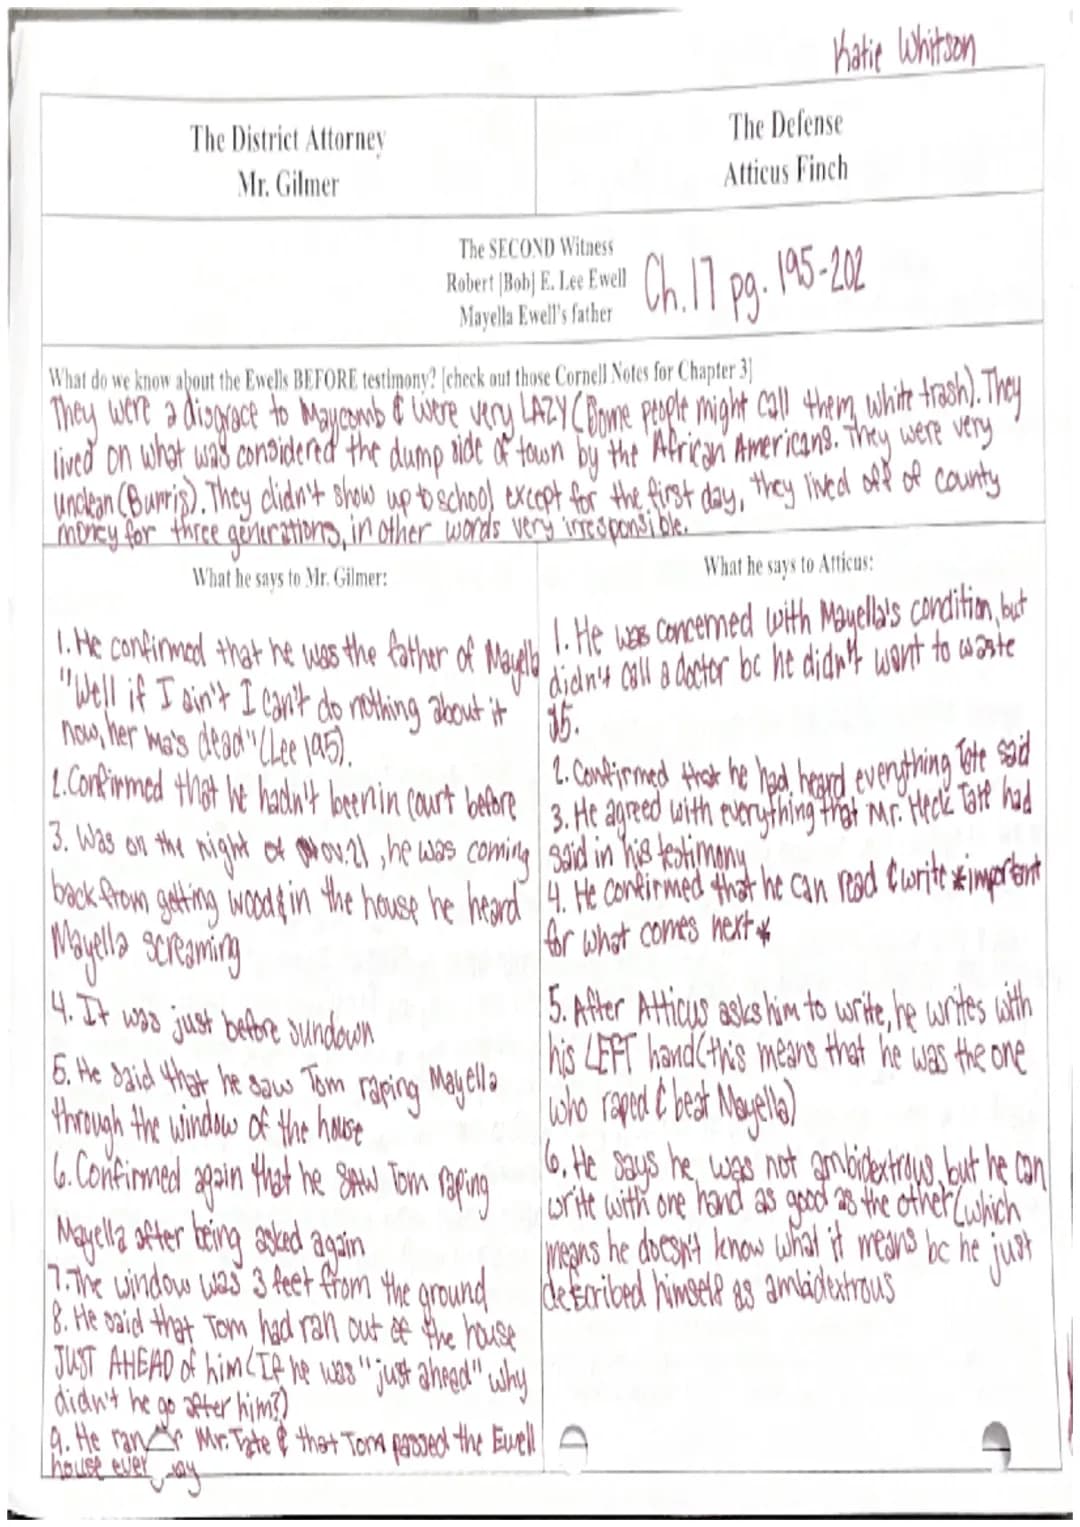 Katie Whitson
The District Attorney
Mr. Gilmer
The Defense
Atticus Finch
The SECOND Witness
Robert [Bob] E. Lee Ewell
Mayella Ewell's father
Ch.17 pg. 195-202
What do we know about the Ewells BEFORE testimony? [check out those Cornell Notes for Chapter 3]
They were a disgrace to Maycomb & were very LAZY (Some people might call them white trash). They
lived on what was considered the dump side of town by the African Americans. They were very
unclean (Burris). They didn't show up to school except for the first day, they lived off of county
money for three generations, in other words very irresponsible.
What he says to Mr. Gilmer:
1. He confirmed that he was the father of Mayella
"Well if I ain't I can't do nothing about it
now, her ma's dead" (Lee 195).
2. Confirmed that he hadn't been in court before
3. Was on the night of Nov. 21, he was coming
back from getting wood & in the house he heard
Mayella screaming
4. It was just before sundown
5. He said that he saw Tom raping Mayella
through the window of the house
6. Confirmed again that he SAW Tom raping
Mayella after being asked again
7. The window was 3 feet from the ground
8. He said that Tom had ran out of the house
JUST AHEAD of him (If he was "just ahead" why
didn't he go after him?)
9. He ran Mr. Tate & that Tom passed the Ewell
house
What he says to Atticus:
1. He was concerned with Mayella's condition, but
didn't call a doctor bc he didn't want to waste
$5.
2. Confirmed that he had heard everything Tate said
3. He agreed with everything that Mr. Heck Tate had
said in his testimony
4. He confirmed that he can read & write *important
for what comes next*
5. After Atticus asks him to write, he writes with
his LEFT hand (this means that he was the one
who raped & beat Mayella)
6. He says he was not ambidextrous, but he can
write with one hand as good as the other (which
means he doesn't know what it means bc he just
described himself as ambidextrous